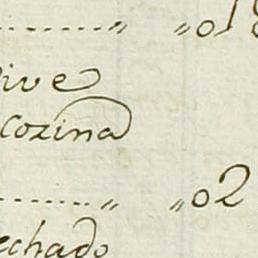 ........„ „018
ive
cozina
........„ „02
echado